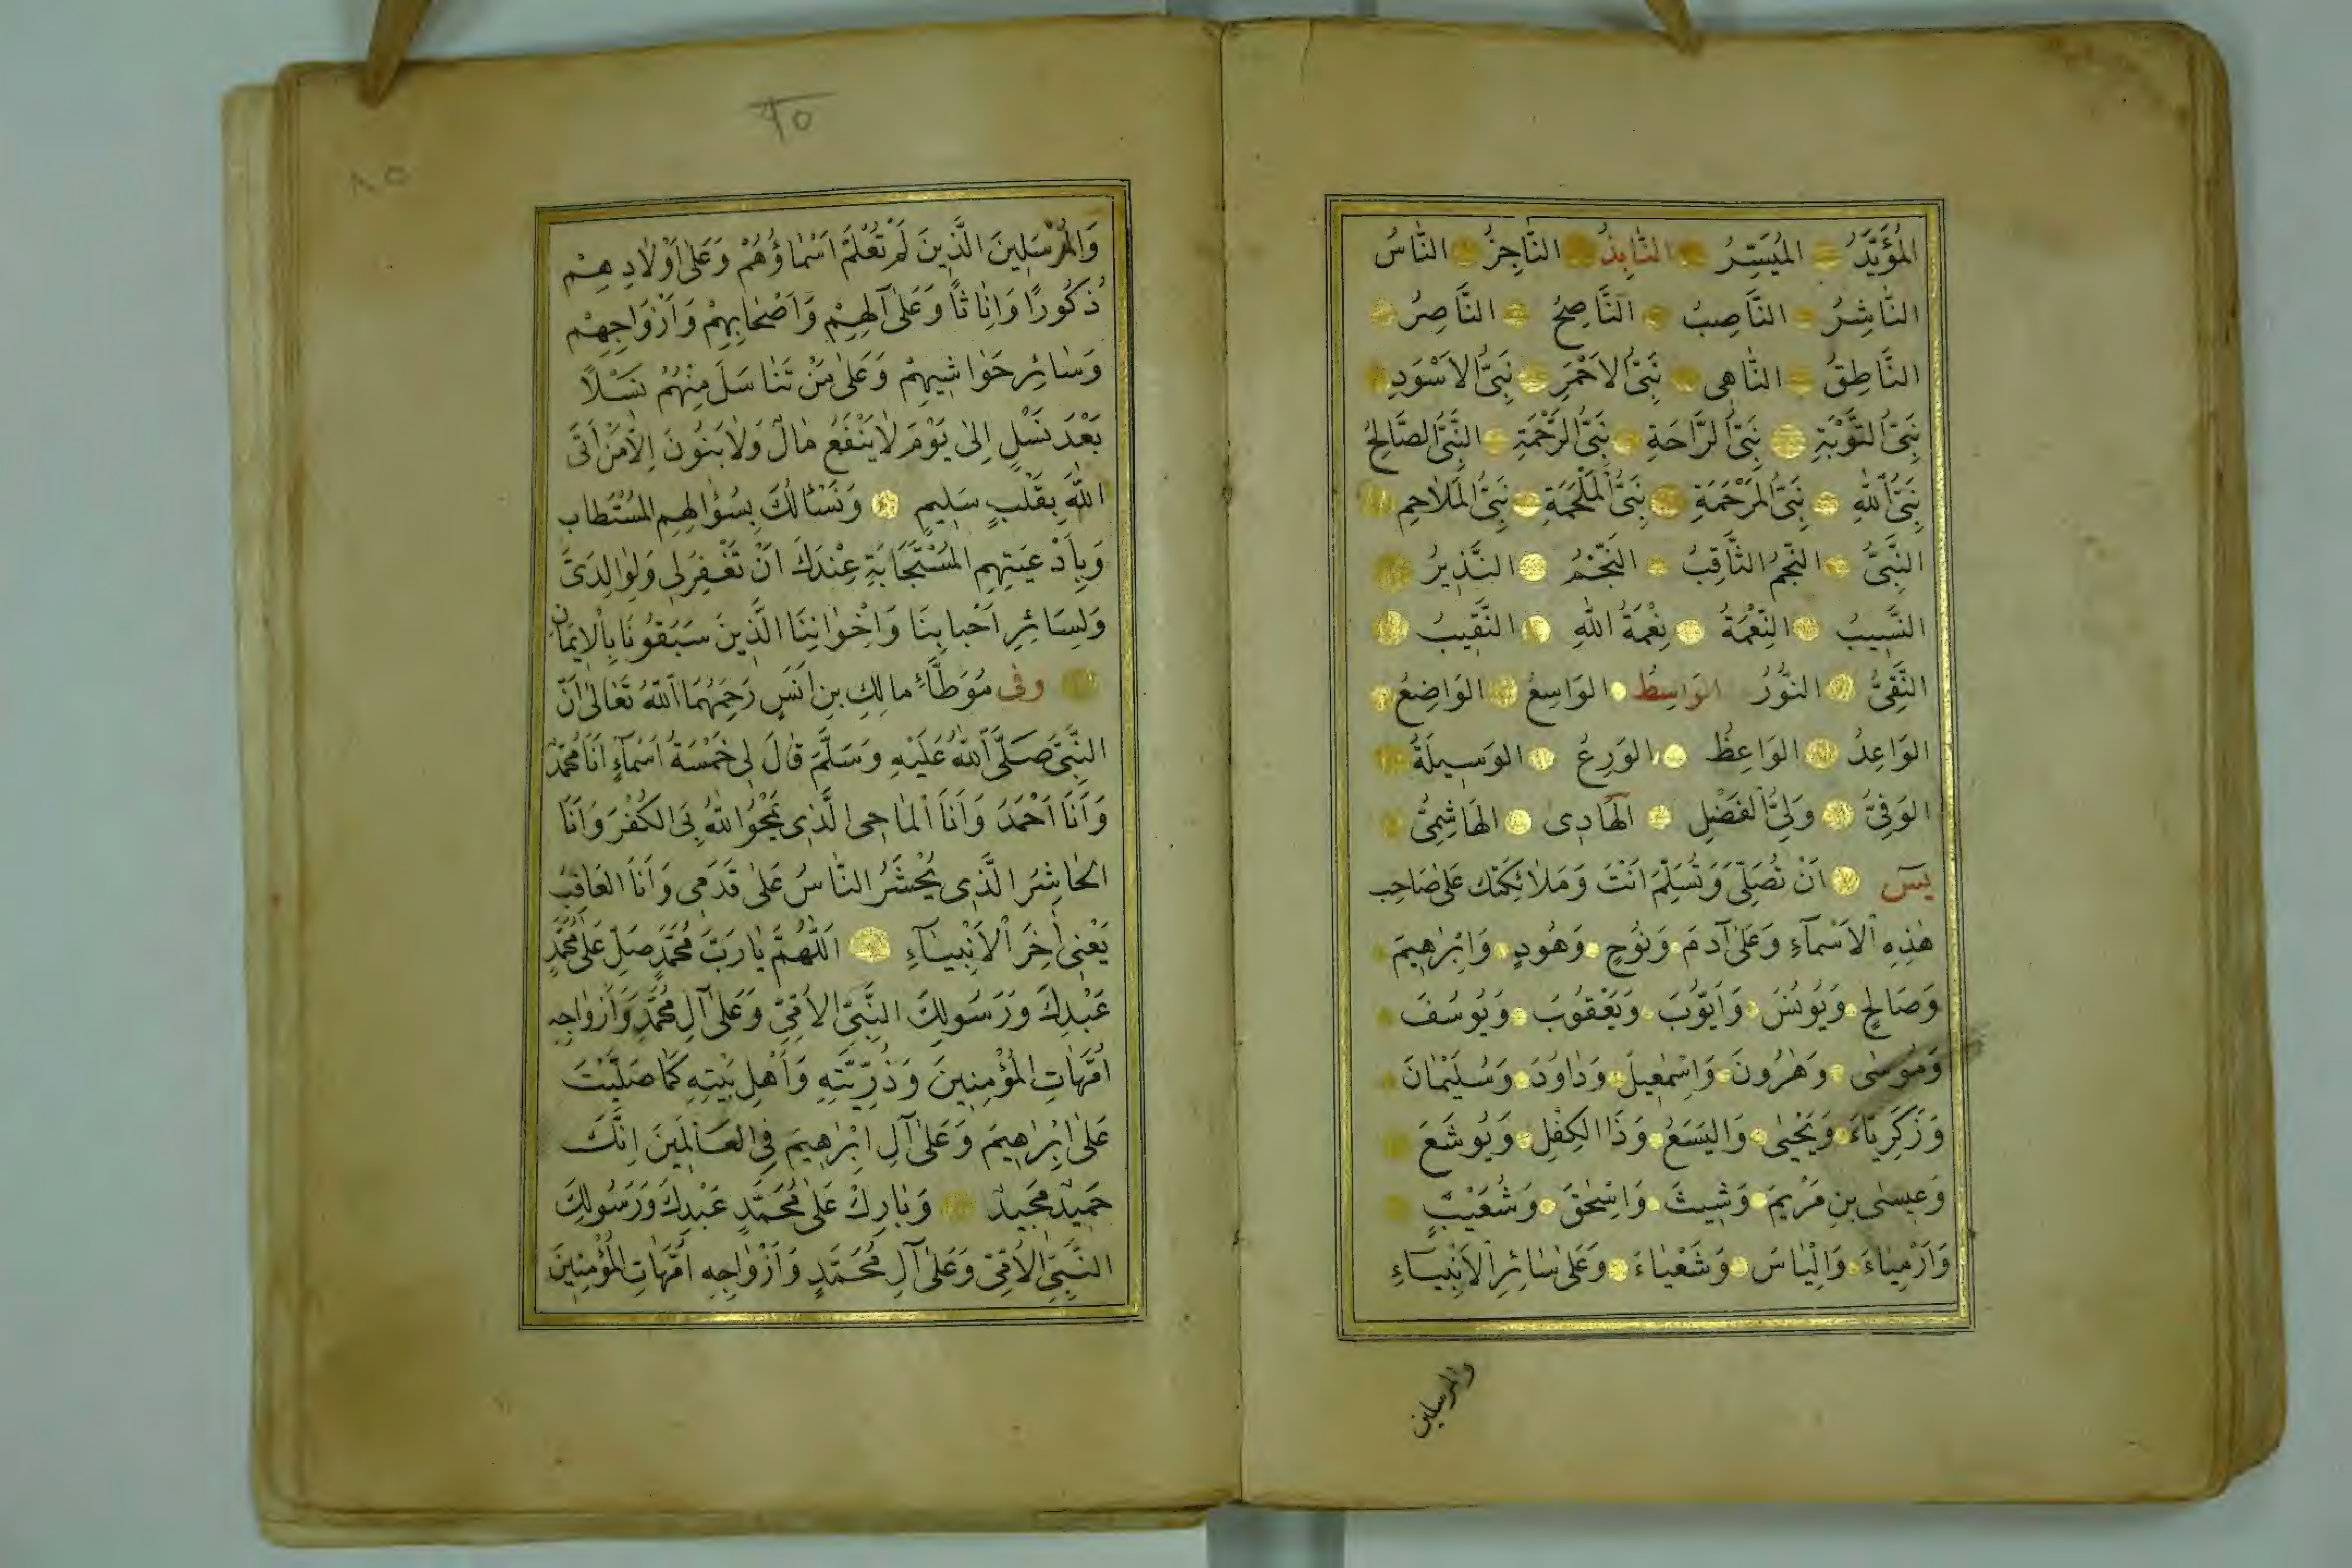 المُؤَيَّدُ المُيَسِّرُ النَّابِذُ النَّاجِزُ النَّاسُ
النَّاشِرُ النَّاصِبُ النَّاصِحُ النَّاصِرُ
النَّاطِقُ النَّاهِى نَبِىُّ الاَحْمَرِ نَبِىُّ الاَسْوَدِ
نَبِىُّ التَّوْبَةِ نَبِىُّ الرَّاحَةِ نَبِىُّ الرَّحْمَةِ النَّبِىُّ الصَّالِحُ
نَبِىُّ اللهِ نَبِىُّ المَرْحَمَةِ نَبِىُّ المَلْحَمَةِ نَبِىُّ المَلَاحِمِ
النَّبِىُّ النَّجْمُ الثَّاقِبُ النَّجْمُ النَّذِيرُ
النَّسِيبُ النِّعْمَةُ نِعْمَةُ اللهِ النَّقِيبُ
النَّقِىُّ النُّورُ الوَاسِطُ الوَاسِعُ الوَاضِعُ
الوَاعِدُ الوَاعِظُ الوَرِعُ الوَسِيلَةُ
الوَفِىُّ وَلِىُّ الفَضْلِ الهَادِى الهَاشِمِىُّ
يٓسٓ اَنْ تُصَلِّىَ وَتُسَلِّمَ اَنْتَ وَمَلَائِكَتُكَ عَلَى صَاحِبِ
هٰذِهِ الْاَسْمَآءِ وَعَلٰى آدَمَ وَنُوحٍ وَهُودٍ وَاِبْرٰهِيمَ
وَصَالِحٍ وَيُونُسَ وَاَيُّوبَ وَيَعْقُوبَ وَيُوسُفَ
وَمُوسٰى وَهٰرُونَ وَاِسْمٰعِيلَ وَدَاوُدَ وَسُلَيْمٰانَ
وَزَكَرِيَّاءَ وَيَحْيٰى وَاليَسَعَ وَذَا الكِفْلِ وَيُوشَعَ
وَعِيسٰى بْنِ مَرْيَمَ وَشِيثَ وَاِسْحٰقَ وَشُعَيْبٍ
وَاَرْمِيَاءَ وَاِلْيَاسَ وَشَعْيَاءَ وَعَلٰى سَائِرِ الاَنْبِيَآءِ
والمرسلين
٩٥
٨٥
وَالمُرْسَلِينَ الَّذِينَ لَمْ تُعْلَمْ اَسْمَاؤُهُمْ وَعَلٰى اَوْلَادِهِمْ
ذُكُورًا وَاِنَاثًا وَعَلٰى آلِهِمْ وَاَصْحَابِهِمْ وَاَزْوَاجِهِمْ
وَسَائِرِ حَوَاشِيهِمْ وَعَلٰى مَنْ تَنَاسَلَ مِنْهُمْ نَسْلًا
بَعْدَ نَسْلٍ اِلٰى يَوْمَ لَا يَنْفَعُ مَالٌ وَلَا بَنُونَ اِلَّا مَنْ اَتَى
اللهَ بِقَلْبٍ سَلِيمٍ وَنَسْأَلُكَ بِسُؤَالِهِمِ المُسْتَطَابِ
وَبِاَدْعِيَتِهِمِ المُسْتَجَابَةِ عِنْدَكَ اَنْ تَغْفِرَ لِى وَلِوَالِدَىَّ
وَلِسَائِرِ اَحْبَابِنَا وَاِخْوَانِنَا الَّذِينَ سَبَقُونَا بِالْاِيمَانِ
وفى مُوَطَّأِ مالِكِ بنِ اَنَسٍ رَحِمَهُمَا اللهُ تَعَالٰى اَنَّ
النَّبِىَّ صَلَّى اللهُ عَلَيْهِ وَسَلَّمَ قَالَ لِى خَمْسَةُ اَسْمَآءٍ اَنَا مُحَمَّدٌ
وَاَنَا اَحْمَدُ وَاَنَا الْمَاحِى الَّذِى يَمْحُو اللهُ بِىَ الكُفْرَ وَاَنَا
الحَاشِرُ الَّذِى يُحْشَرُ النَّاسُ عَلٰى قَدَمِى وَاَنَا العَاقِبُ
يَعْنِى آخِرَ الْاَنْبِيَآءِ اَللّٰهُمَّ يَا رَبَّ مُحَمَّدٍ صَلِّ عَلٰى مُحَمَّدٍ
عَبْدِكَ وَرَسُولِكَ النَّبِىِّ الاُمِّىِّ وَعَلٰى آلِ مُحَمَّدٍ وَاَزْوَاجِهِ
اُمَّهَاتِ المُؤْمِنِينَ وَذُرِّيَّتِهِ وَاَهْلِ بَيْتِهِ كَمَا صَلَّيْتَ
عَلٰى اِبْرٰهِيمَ وَعَلٰى آلِ اِبْرٰهِيمَ فِى العَالَمِينَ اِنَّكَ
حَمِيدٌ مَجِيدٌ وَبَارِكْ عَلٰى مُحَمَّدٍ عَبْدِكَ وَرَسُولِكَ
النَّبِىِّ الاُمِّىِّ وَعَلٰى آلِ مُحَمَّدٍ وَاَزْوَاجِهِ اُمَّهَاتِ المُؤْمِنِينَ